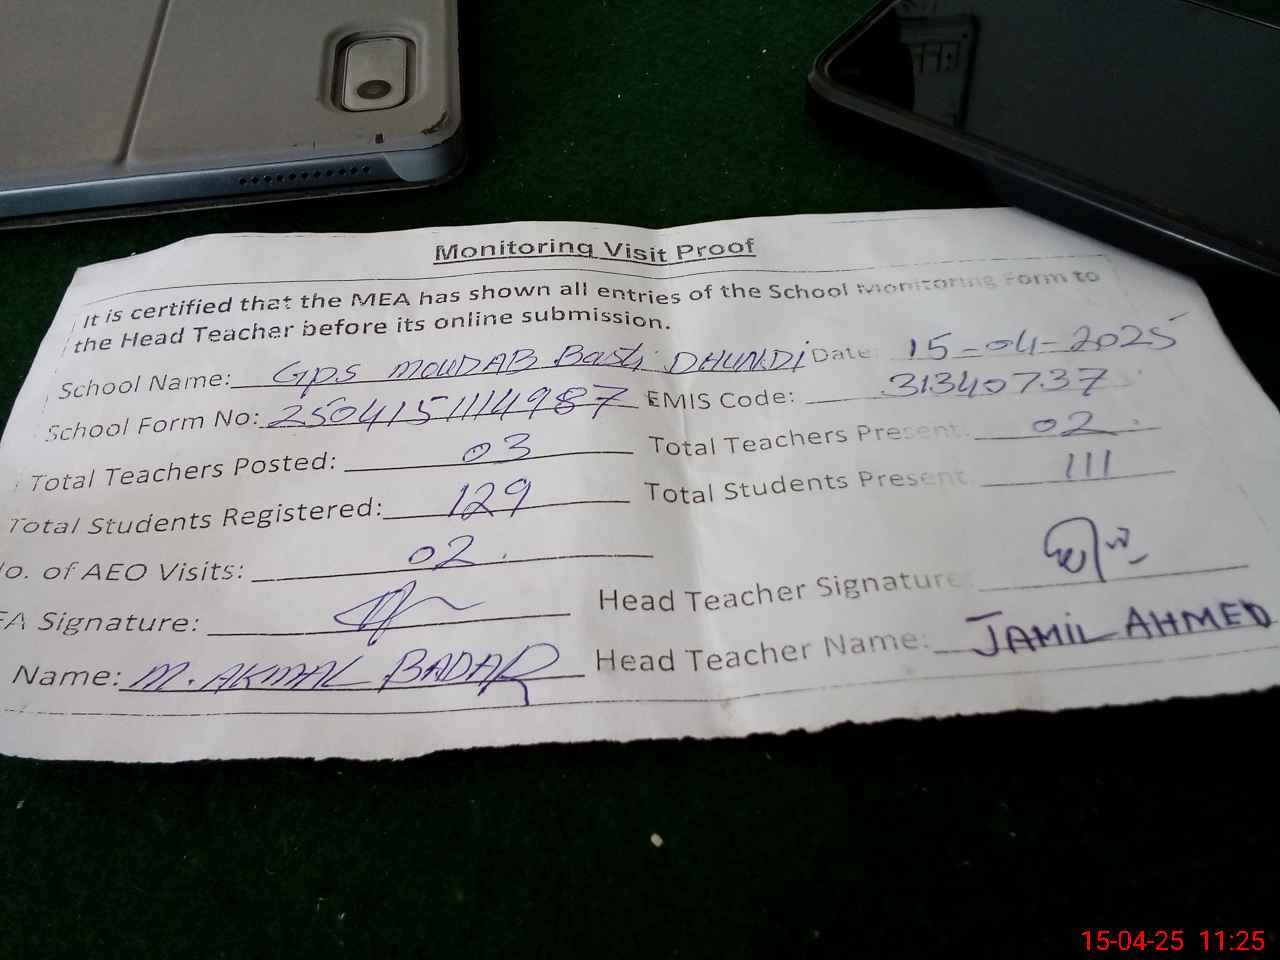 Monitoring Visit Proof
It is certified that the MEA has shown all entries of the School Monitoring Form to
the Head Teacher before its online submission.
School Name: GPS MOUDAB Basti DHUNDI Date: 15-04-2025
School Form No: 25041511114987 EMIS Code: 31340737
Total Teachers Posted: 03 Total Teachers Present: 02
Total Students Registered: 129 Total Students Present: 111
No. of AEO Visits: 02
EA Signature: Head Teacher Signature:
Name: M. AKMAL BADAR Head Teacher Name: JAMIL AHMED
15-04-25 11:25